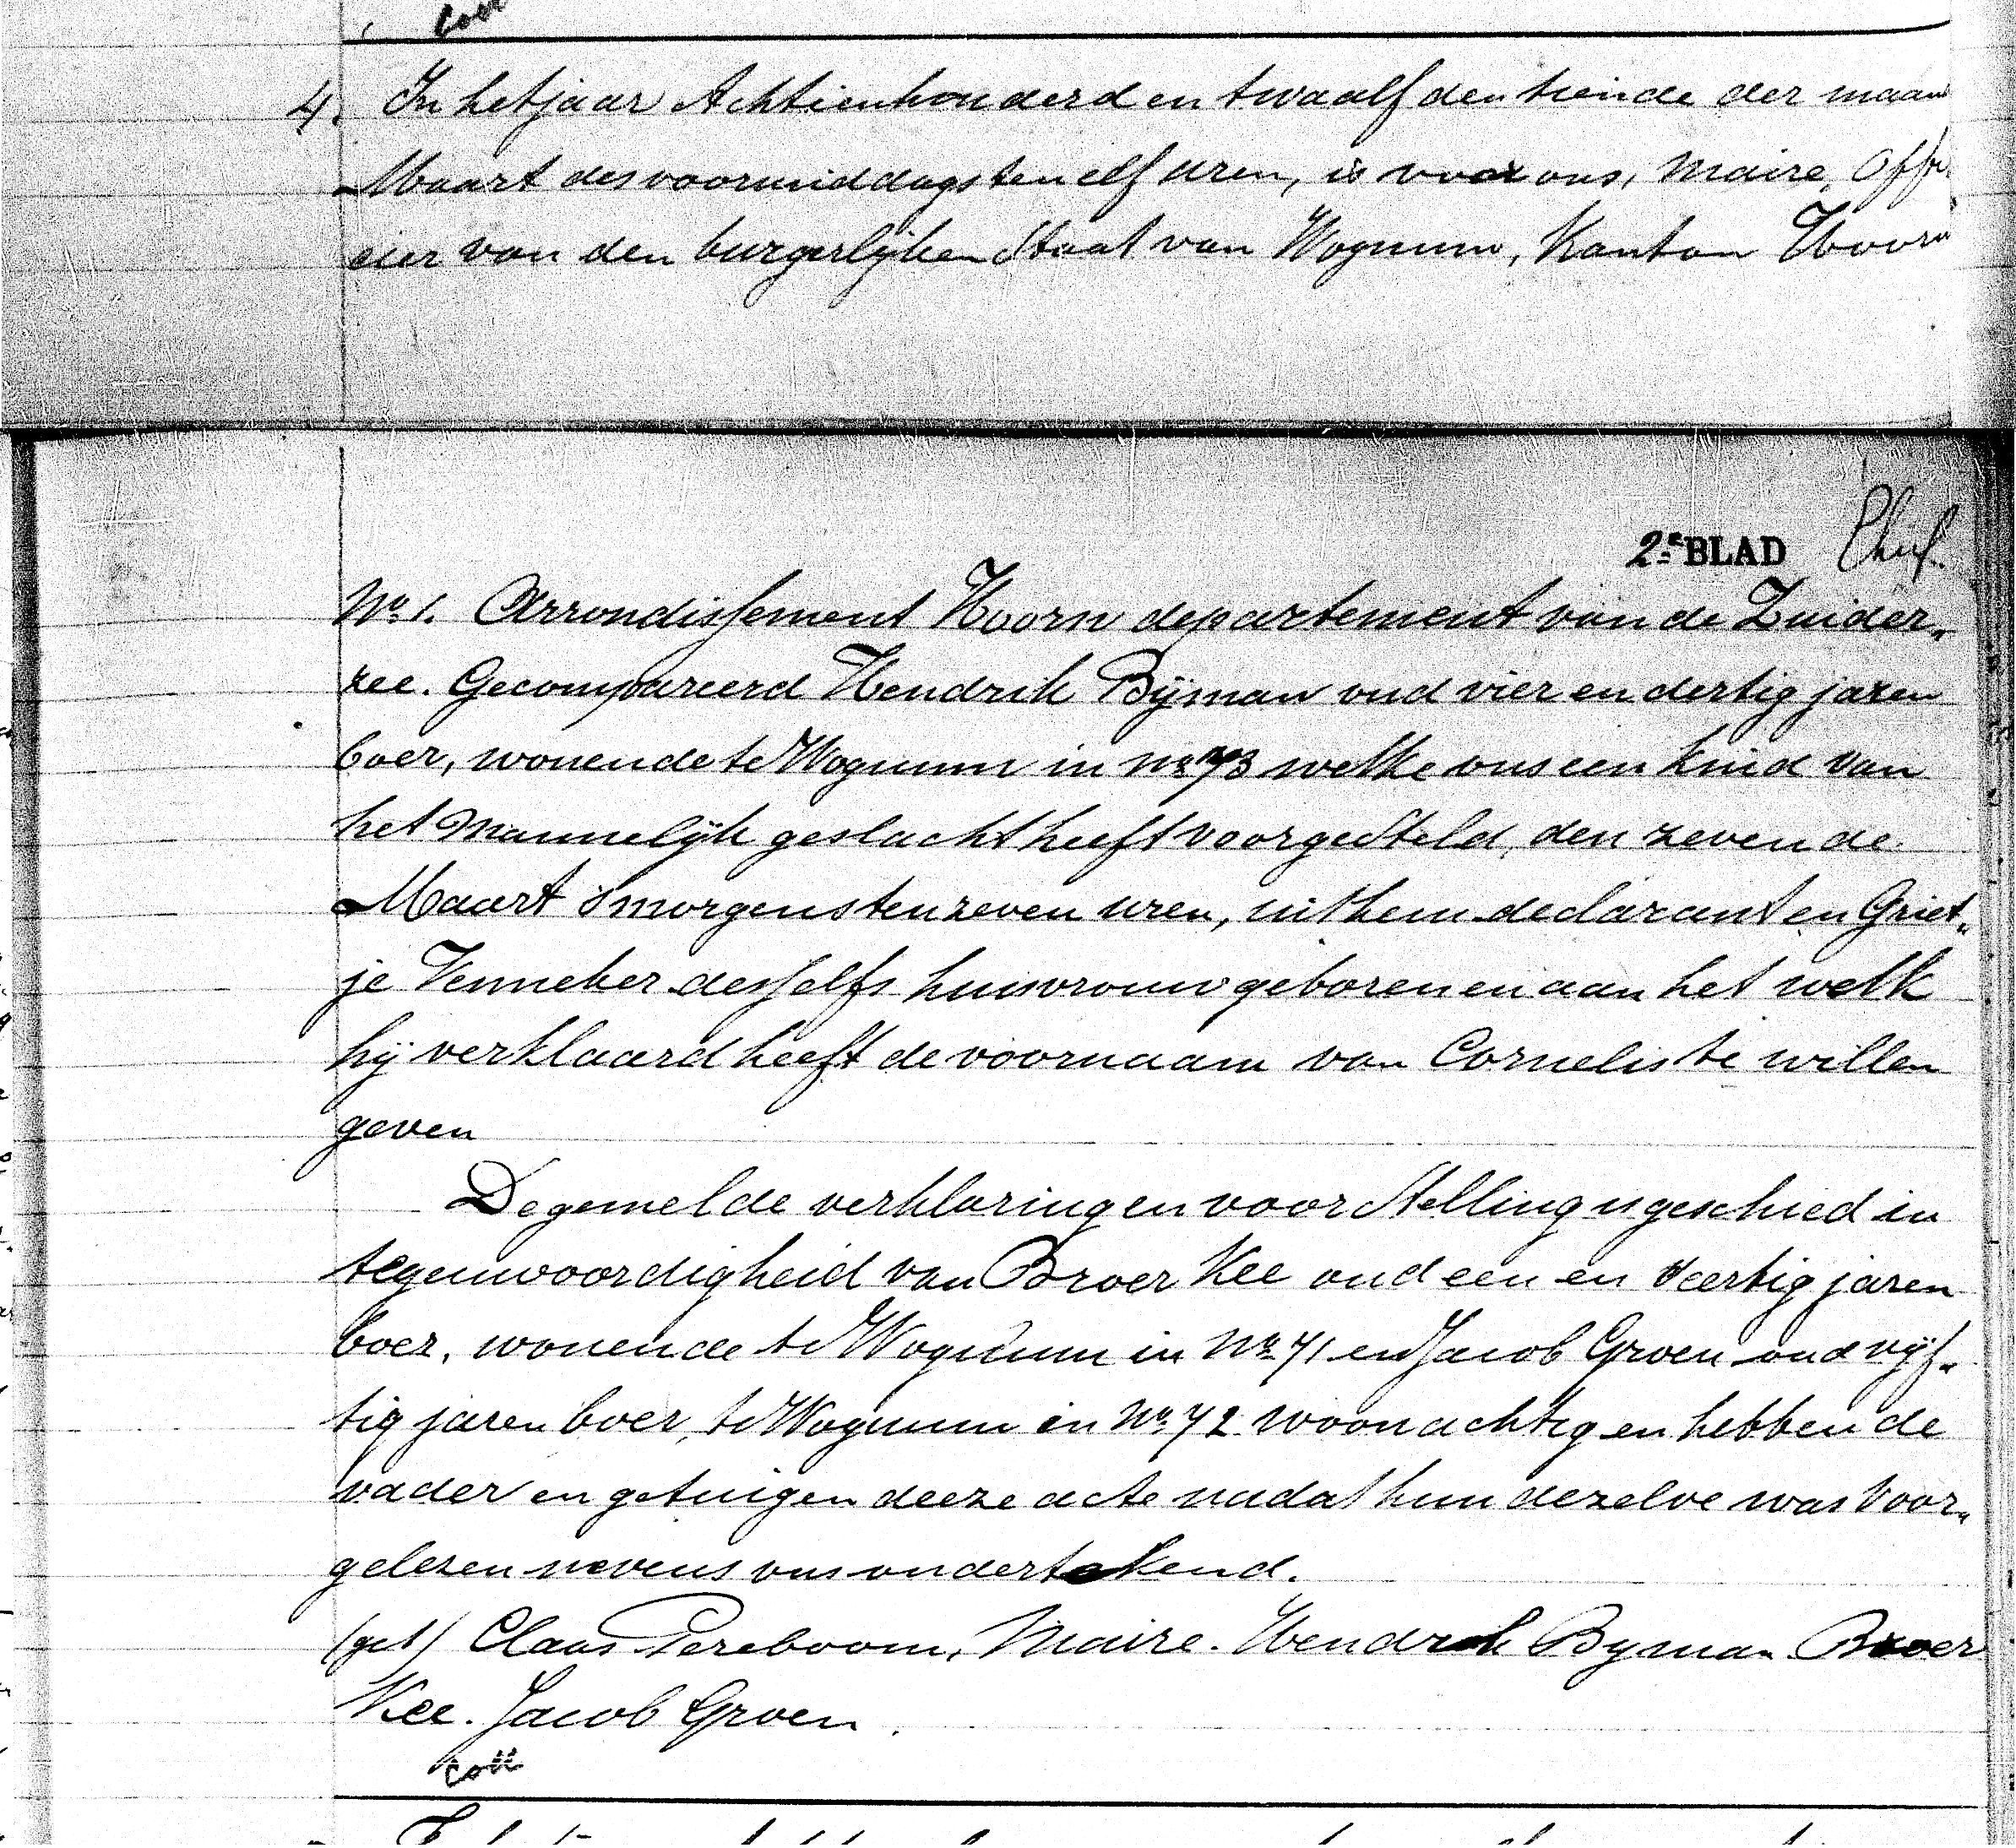 coll
4. In het jaar Achtienhonderd en twaalf den tiende der maand
Maart des voormiddags ten elf uren, is voor ons, Maire, Offi
cier van den burgerlijken Staat van Wognum, Kanton Hoorn
2e BLAD
No 1. Arrondissement Hoorn departement van de Zuider„
zee. Gecompareerd Hendrik Bijman oud vier en dertig jaren
boer, wonende te Wognum in No 73 welke ons een kind van
het Mannelijk geslacht heeft voorgesteld, den zevende
Maart smorgens ten zeven uren, uit hem declarant en Griet„
je Venneker desselfs huisvrouw geboren en aan het welk
hij verklaard heeft de voornaam van Cornelis te willen
geven
De gemelde verklaring en voorstelling is geschied in
tegenwoordigheid van Broer Kee oud een en veertig jaren
boer, wonende te Wognum in No 71 en Jacob Groen oud vijf„
tig jaren boer, te Wognum in No 72 woonachtig en hebben de
vader en getuigen deeze acte nadat hun dezelve was voor„
gelezen nevens ons ondertekend.
(get) Claas Pereboom, Maire. Hendrik Byman Broer
Kee. Jacob Groen.
coll